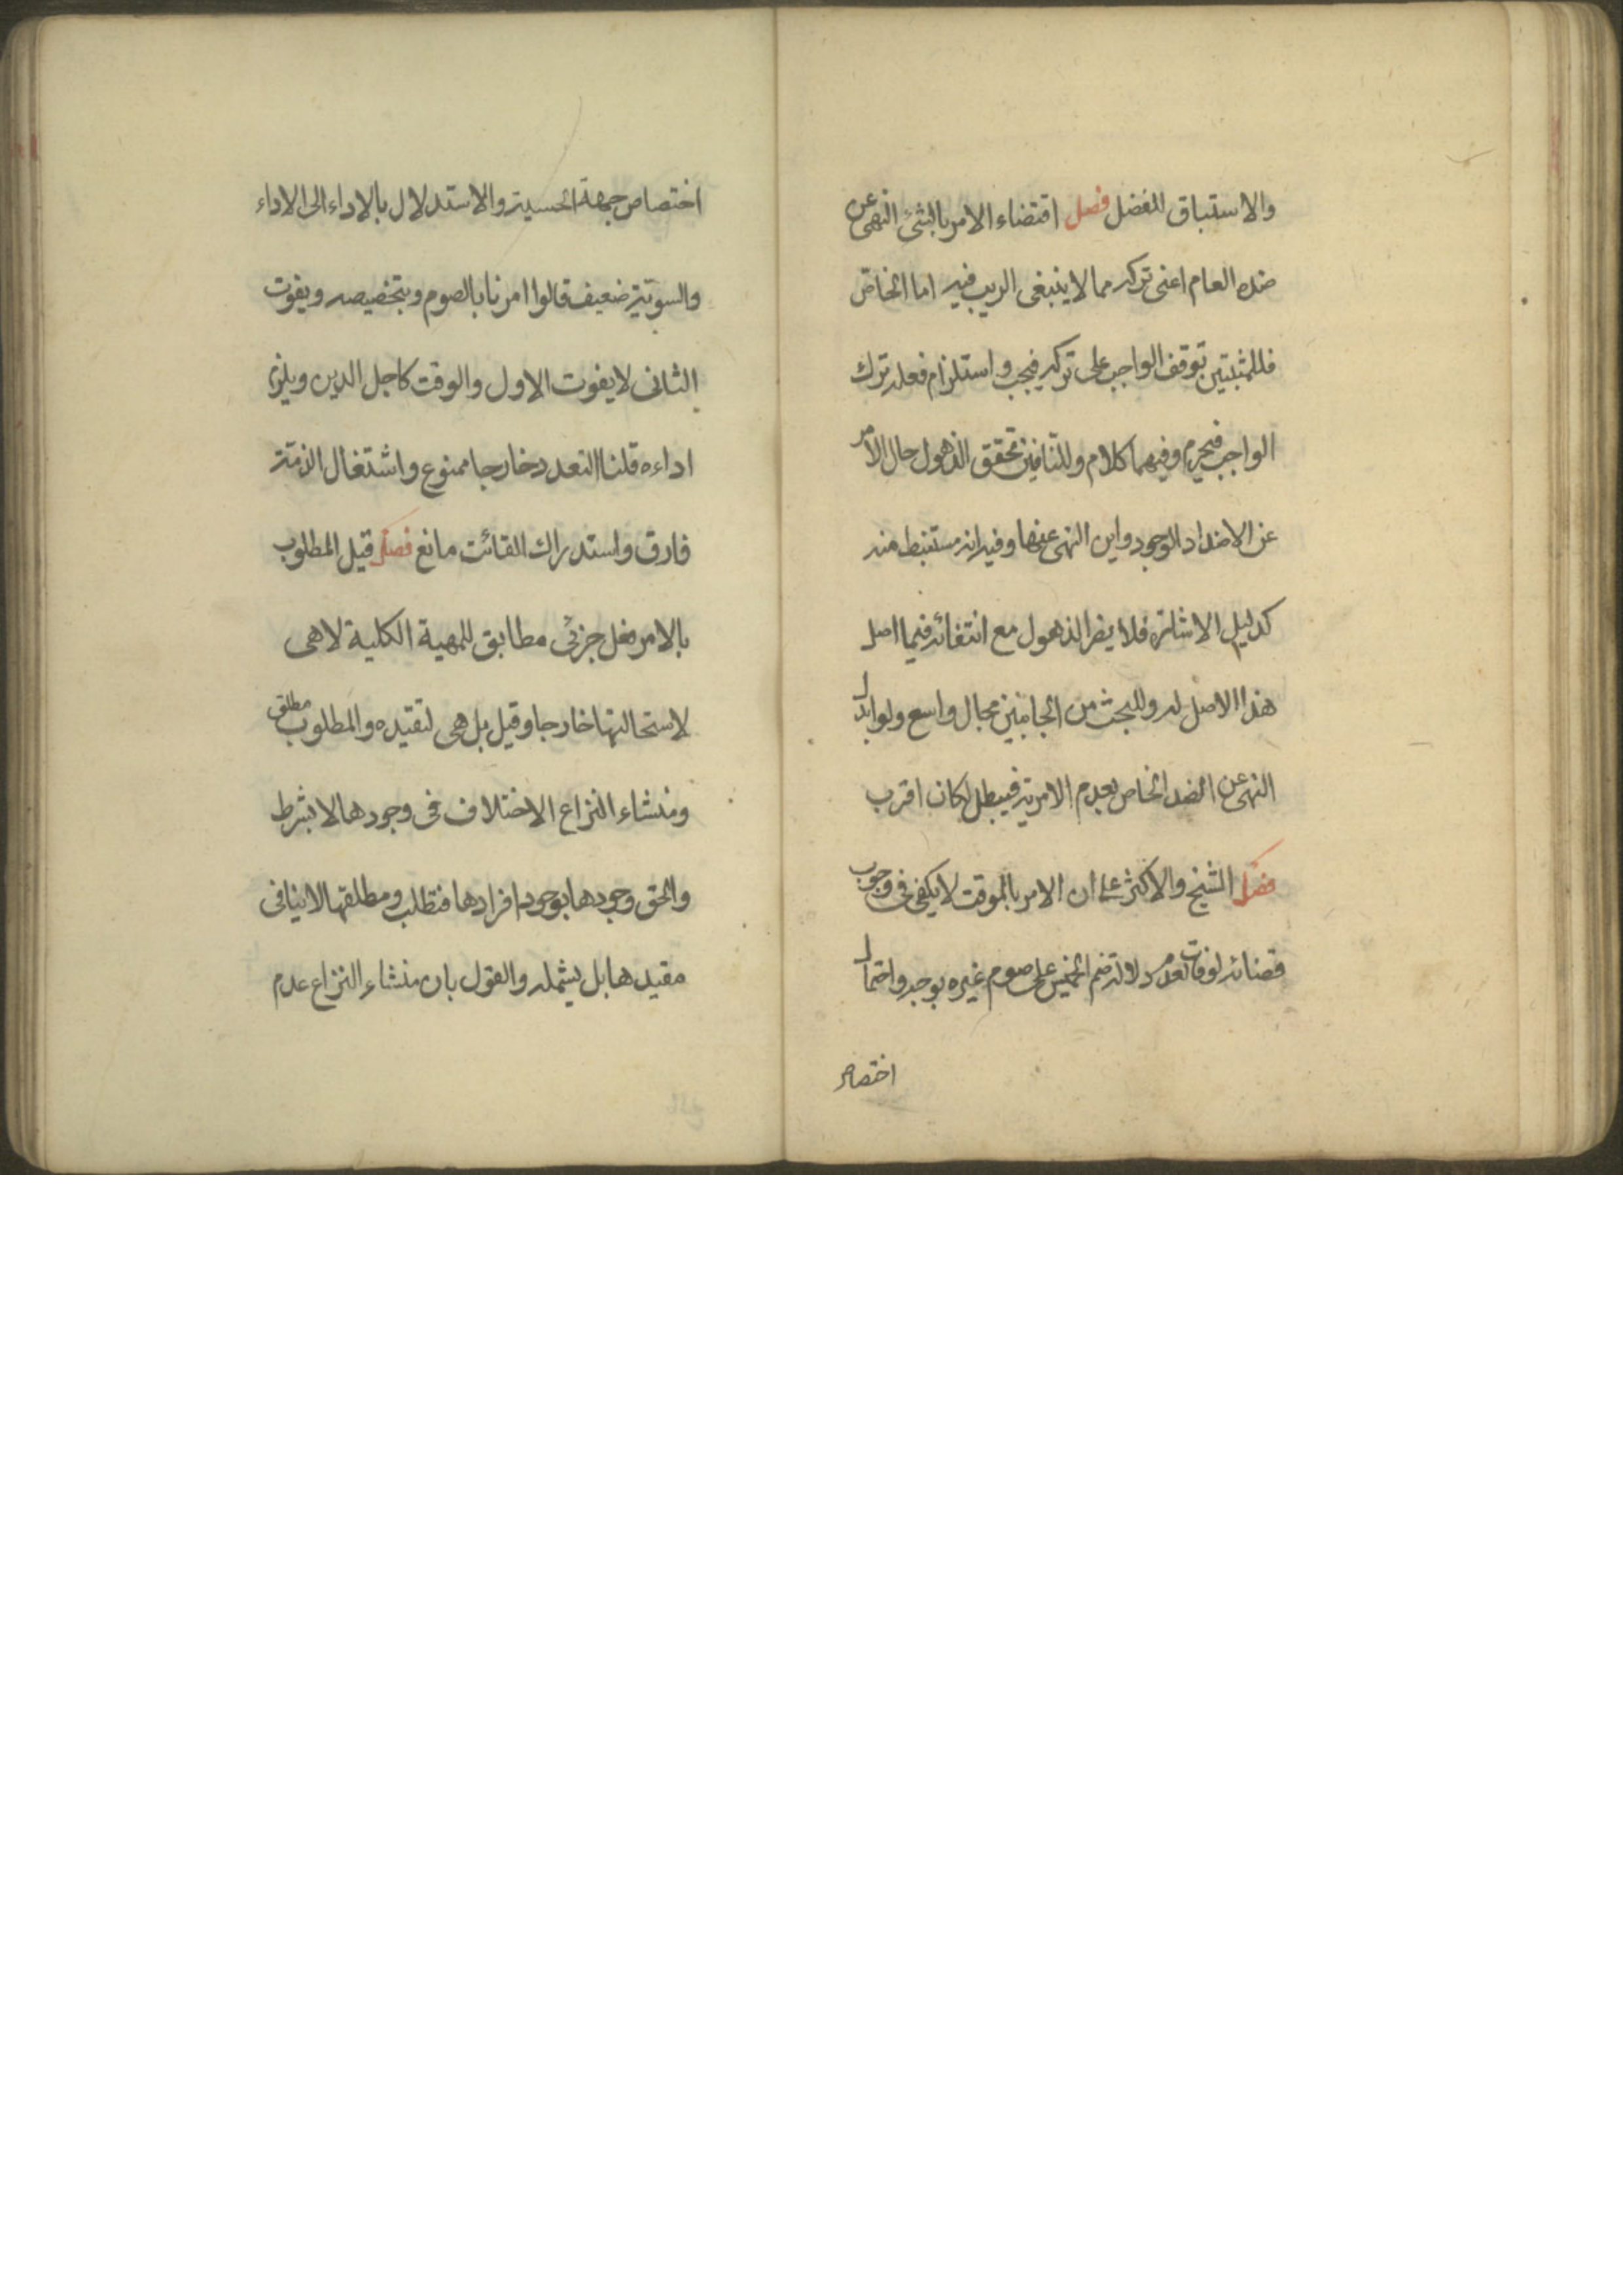 والاستباق للفضل فصل اقتضاء الامر بالشئ النهى عن
ضده العام اعنى تركه مما لا ينبغى الريب فيه اما الخاص
فللمثبتين توقف الواجب على تركه فيجب واستلزام فعله ترك
الواجب فيحرم وفيهما كلام وللنافين تحقق الذهول حال الامر
عن الاضداد الوجود واين النهى عنها وفيه انه مستنبط منه
كدليل الاشارة فلا يضر الذهول مع انتفائه فيما اصل
هذا الاصل له وللبحث من الجانبين مجال واسع ولو ابدل
النهى عن الضد الخاص بعدم الامر به فيبطل لكان اقرب
فصل الشيخ والاكثر على ان الامر بالموقت لا يكفى فى وجوب
قضائه لو فات لعدم دلالة صم الخميس على صوم غيره بوجه واحتمال
اختصاص
اختصاص جهة الحسية والاستدلال بالاداء الى الاداء
والسوية ضعيف قالوا امرنا بالصوم وبتخصيصه وبفوت
الثانى لا يفوت الاول والوقت كاجل الدين ويلزم
اداءه قلنا التعدد خارجا ممنوع واشتغال الذمة
فارق واستدراك الفائت مانع فصل قيل المطلوب
بالامر فعل جزئى مطابق للمهية الكلية لا هى
لاستحالتها خارجا وقيل بل هى لتقيده والمطلوب مطلق
ومنشاء النزاع الاختلاف فى وجودها لا بشرط
والحق وجودها بوجود افرادها فتطلب ومطلقها لا ينافى
مقيدها بل يشمله والقول بان منشاء النزاع عدم